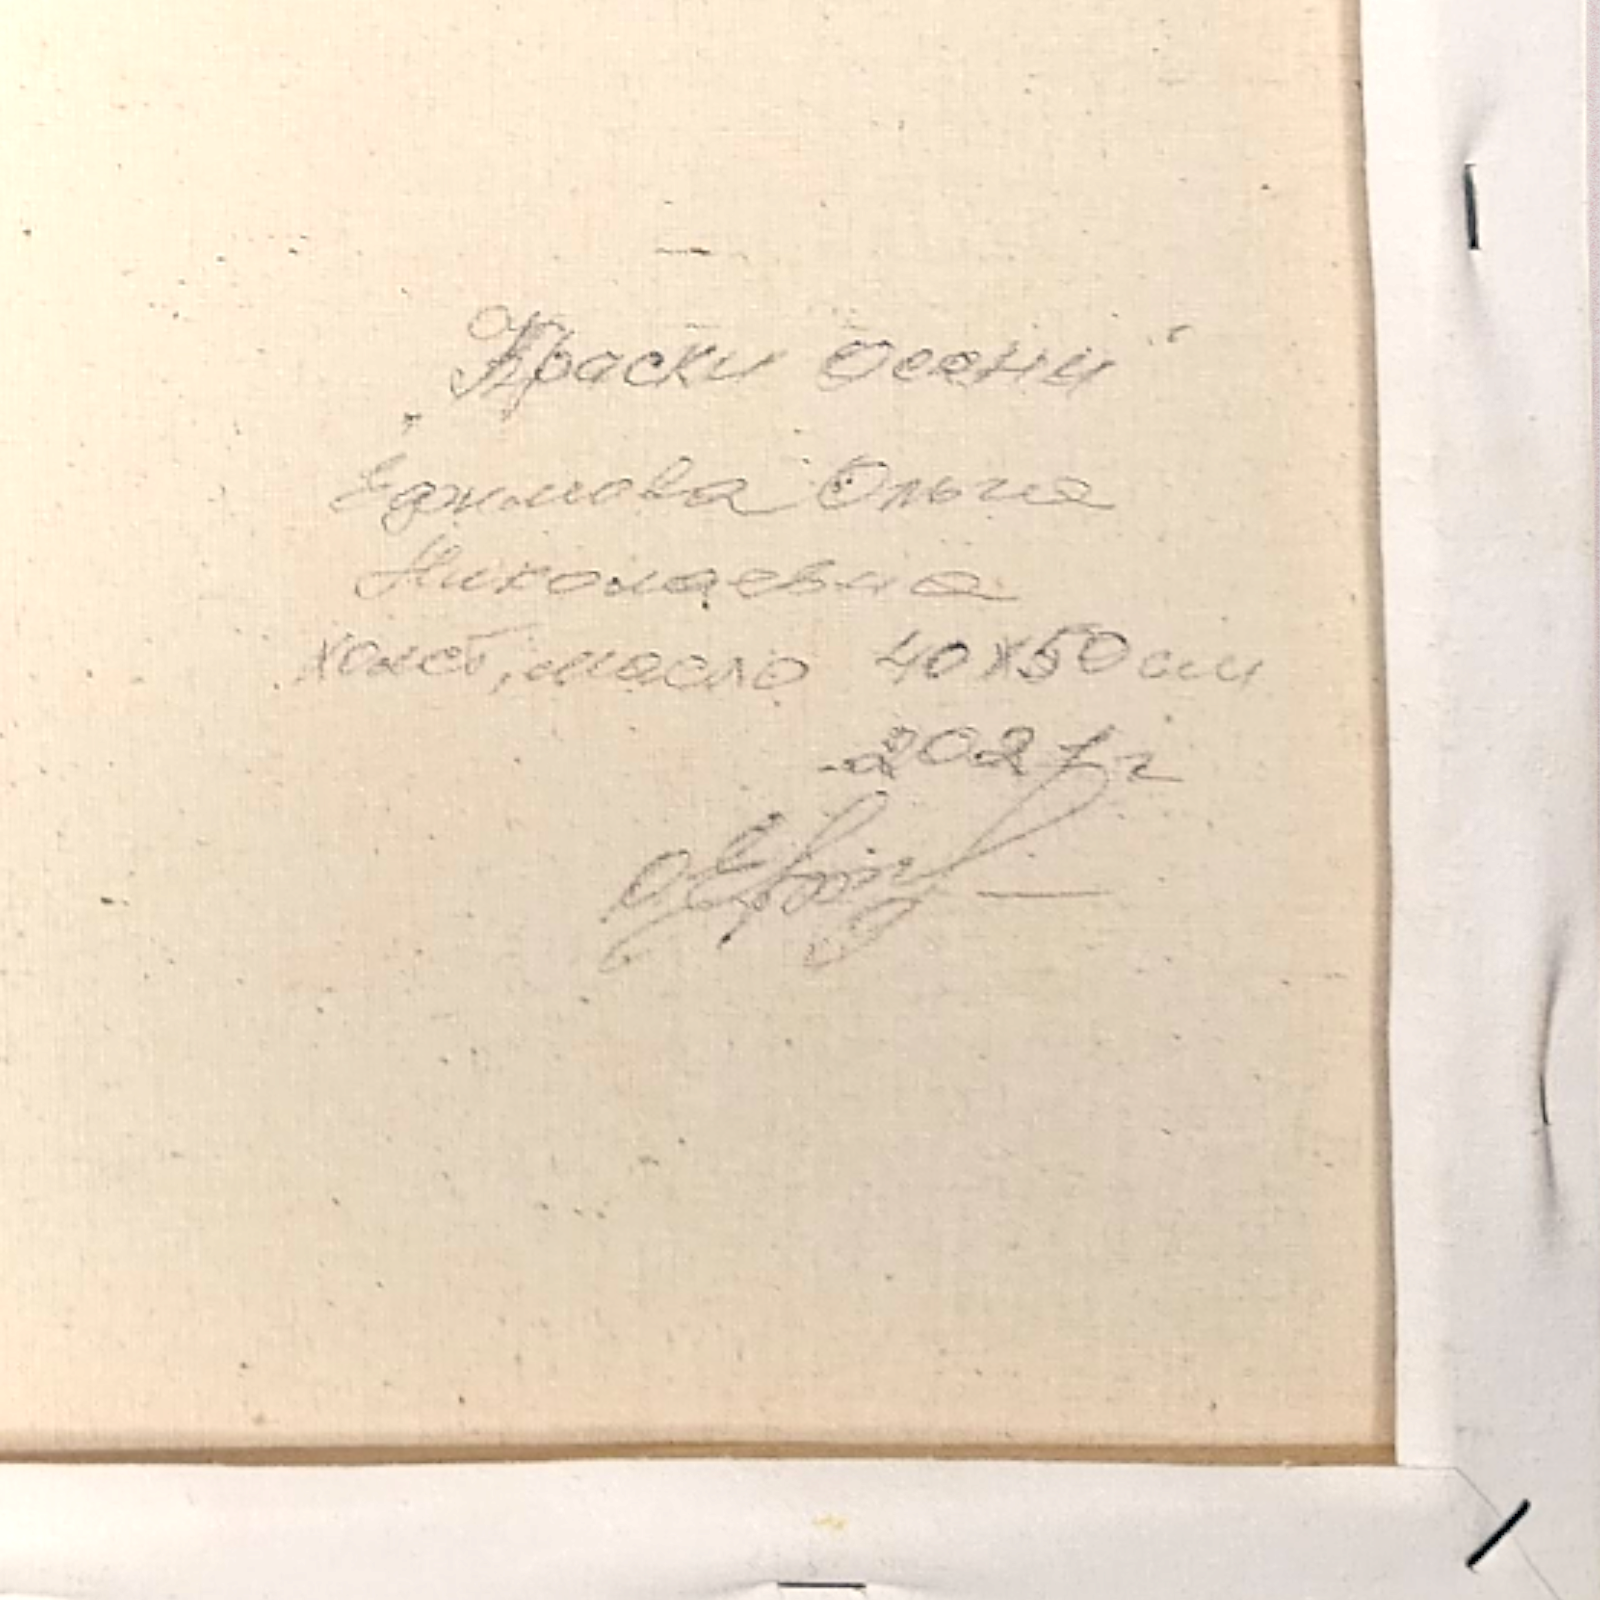 "Краски осени"
Ефимова Ольга
Николаевна
холст, масло 40х50 см
2021г